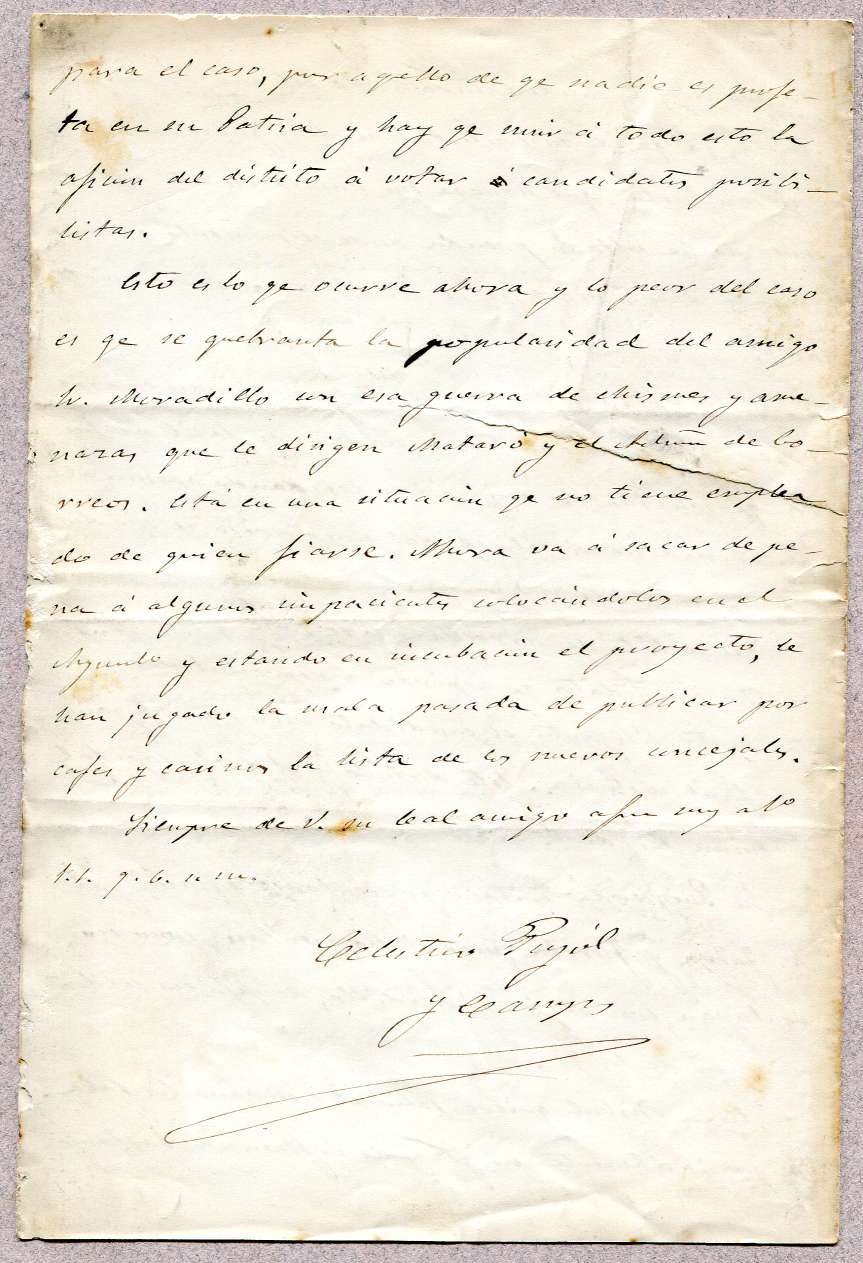 para el caso, por aqello de qe nadie es profe-
ta en su Patria y hay qe unir á todo esto la
aficion del distrito á votar á candidatos posibi-
listas.
Esto es lo qe ocurre ahora y lo peor del caso
es qe se quebranta la popularidad del amigo
Sr. Moradillo con esa guerra de chismes y ame-
nazas que le dirigen Mataró y el Admón de Co-
rreos. Está en una situacion qe no tiene emplea
do de quien fiarse. Ahora va á sacar de pe-
na á algunos impacientes colocándolos en el
Ayunto y estando en incubacion el proyecto, le
han jugado la mala pasada de publicar por
cafes y casinos la lista de los nuevos concejales.
Siempre de V. su leal amigo afmo muy ato
s.s. q. b. s. m.
Celestino Pujól
y Camps